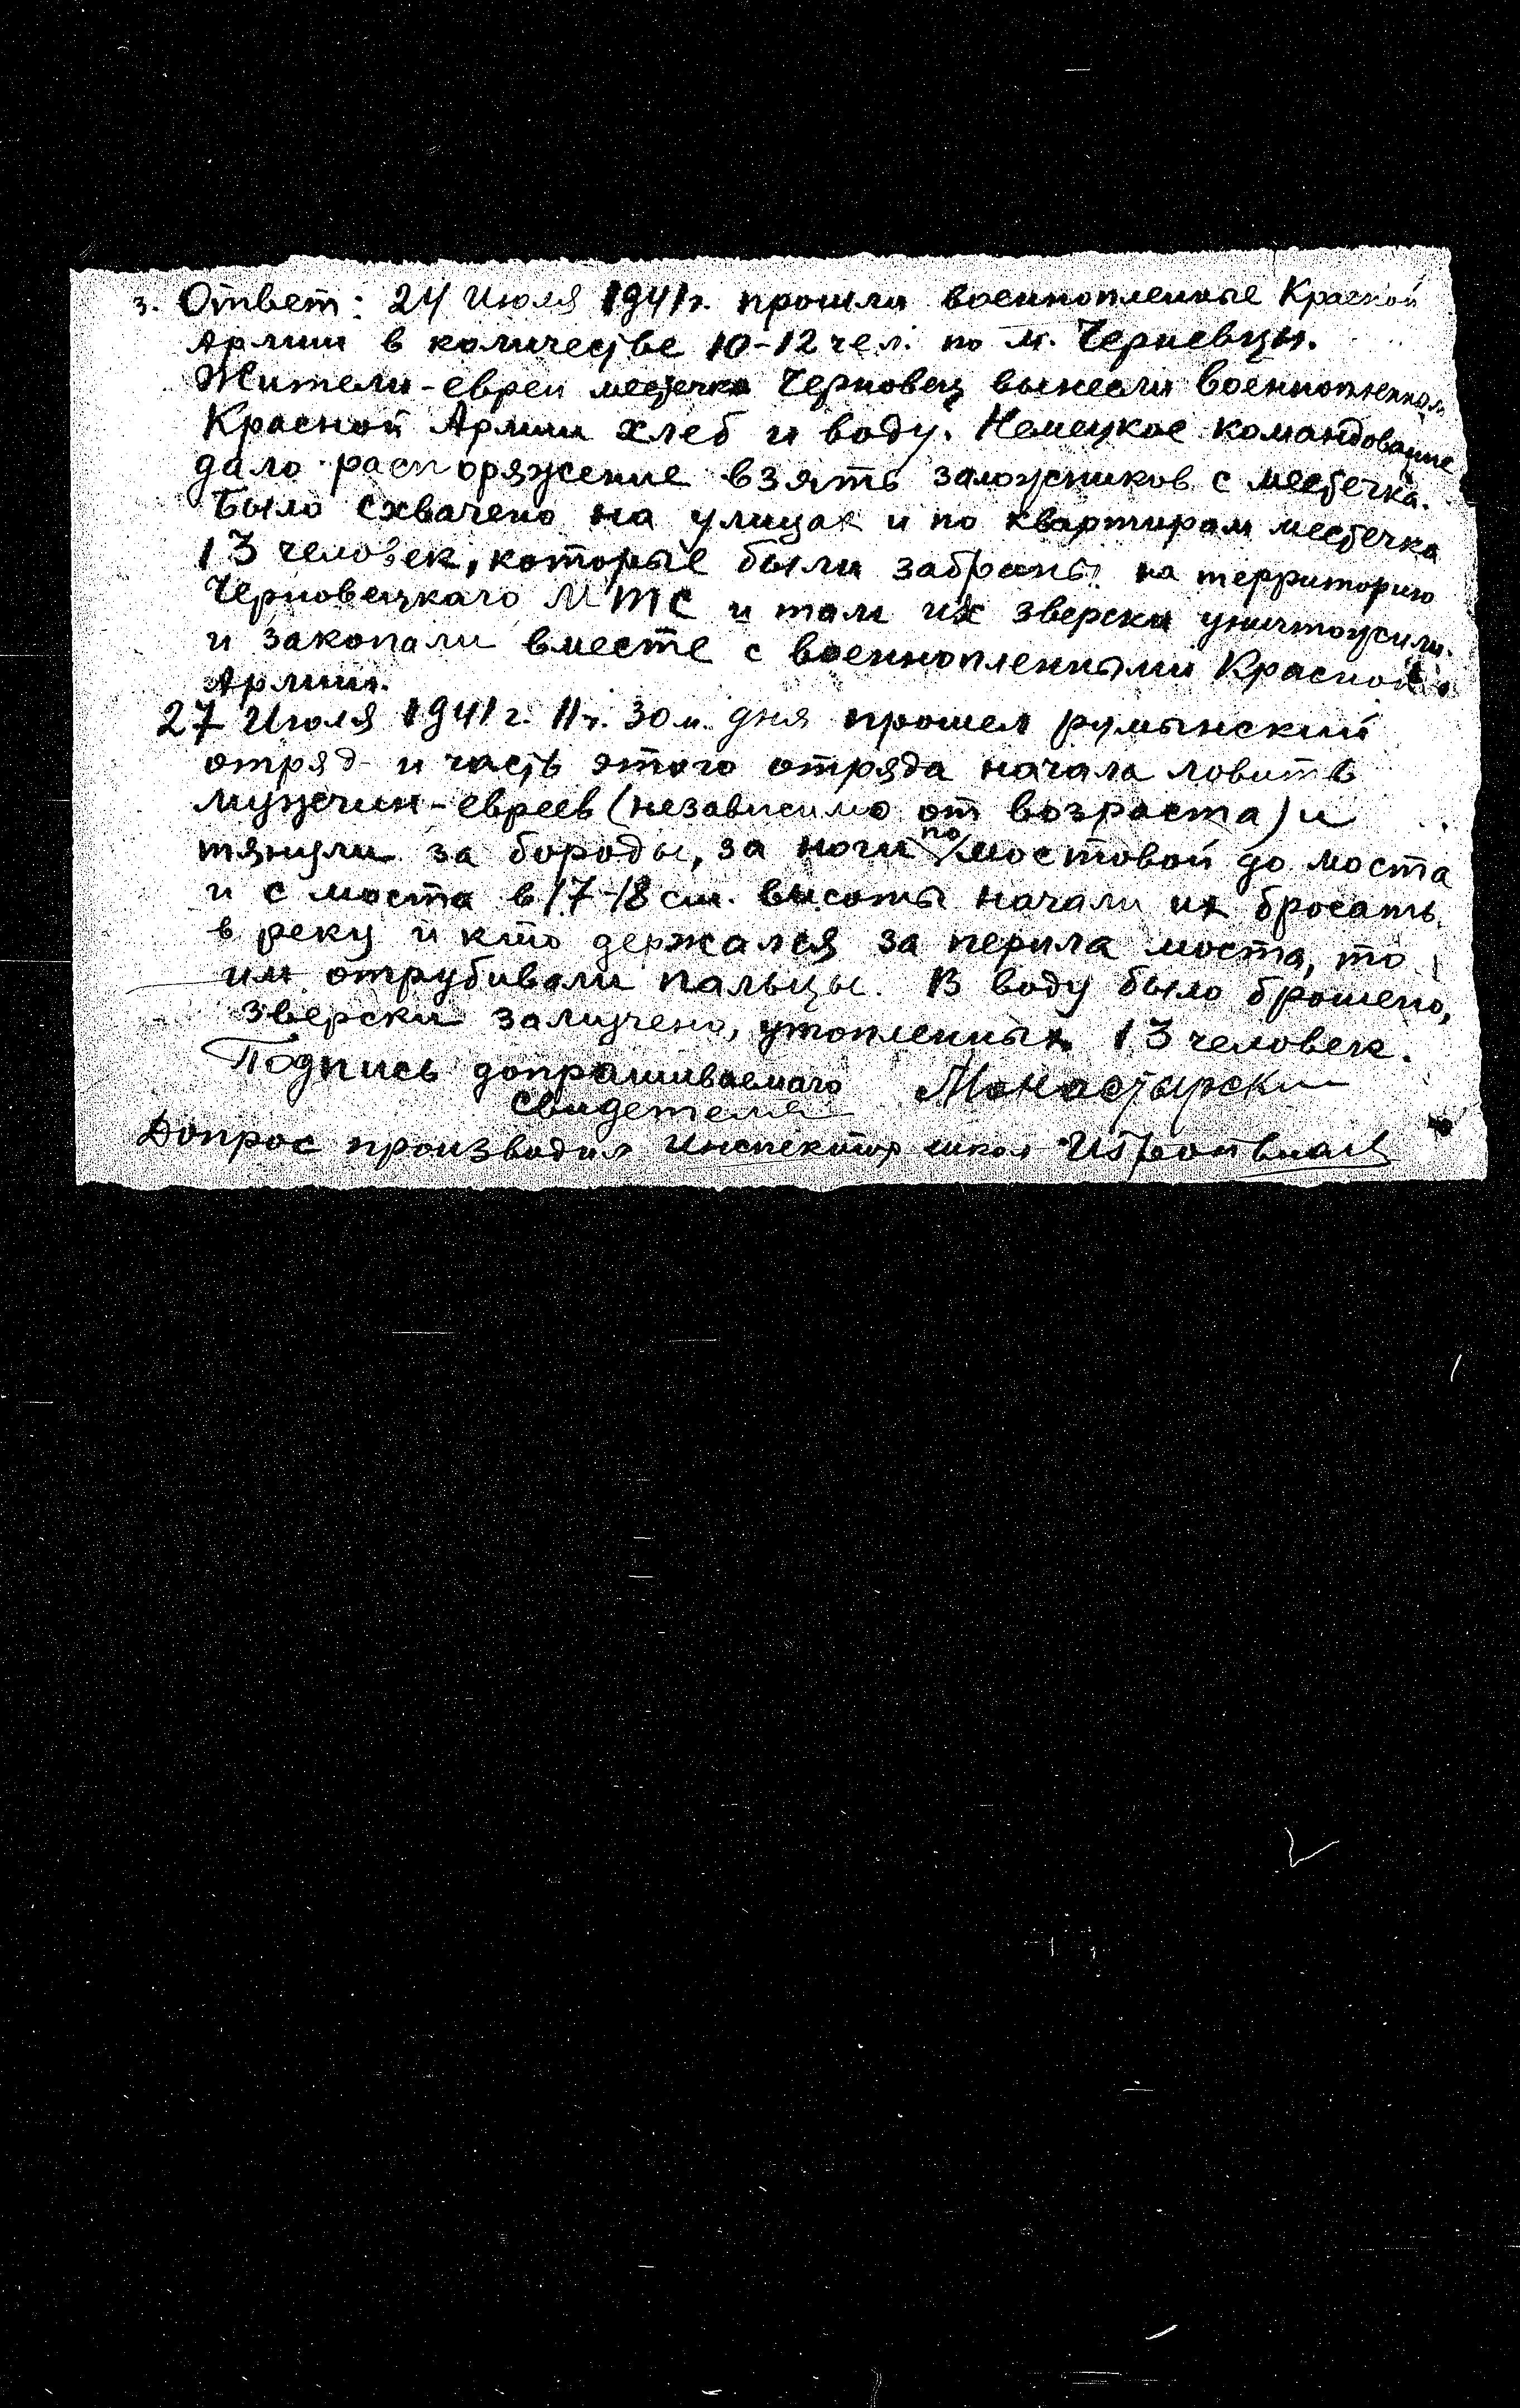 3. Ответ: 24 Июля 1941г. прошли военнопленные Красной
Армии в количестве 10-12 чел. по м. Черневцы.
Жители-евреи местечка Черновец вынесли военнопленным
Красной Армии хлеб и воду. Немецкое командование
дало распоряжение взять заложников с местечка.
Было схвачено на улицах и по квартирам местечка
13 человек, которые были забраны на территорию
Черновецкаго МТС и там их зверски уничтожили
и закопали вместе с военнопленными Красной
Армии.
27 Июля 1941 г. 11 ч. 30 м. дня прошел румынский
отряд и часть этого отряда начала ловить
мужчин-евреев (независимо от возраста) и
тянули за бороды, за ноги по мостовой до моста
и с моста в 17-18 см. высоты начали их бросать
в реку и кто держался за перила моста, то
им отрубивали пальцы. В воду было брошено,
зверски замучено, утопленных 13 человек.
Подпись допрашиваемаго Монастырский
свидетеля
Допрос производил Инспектор школ